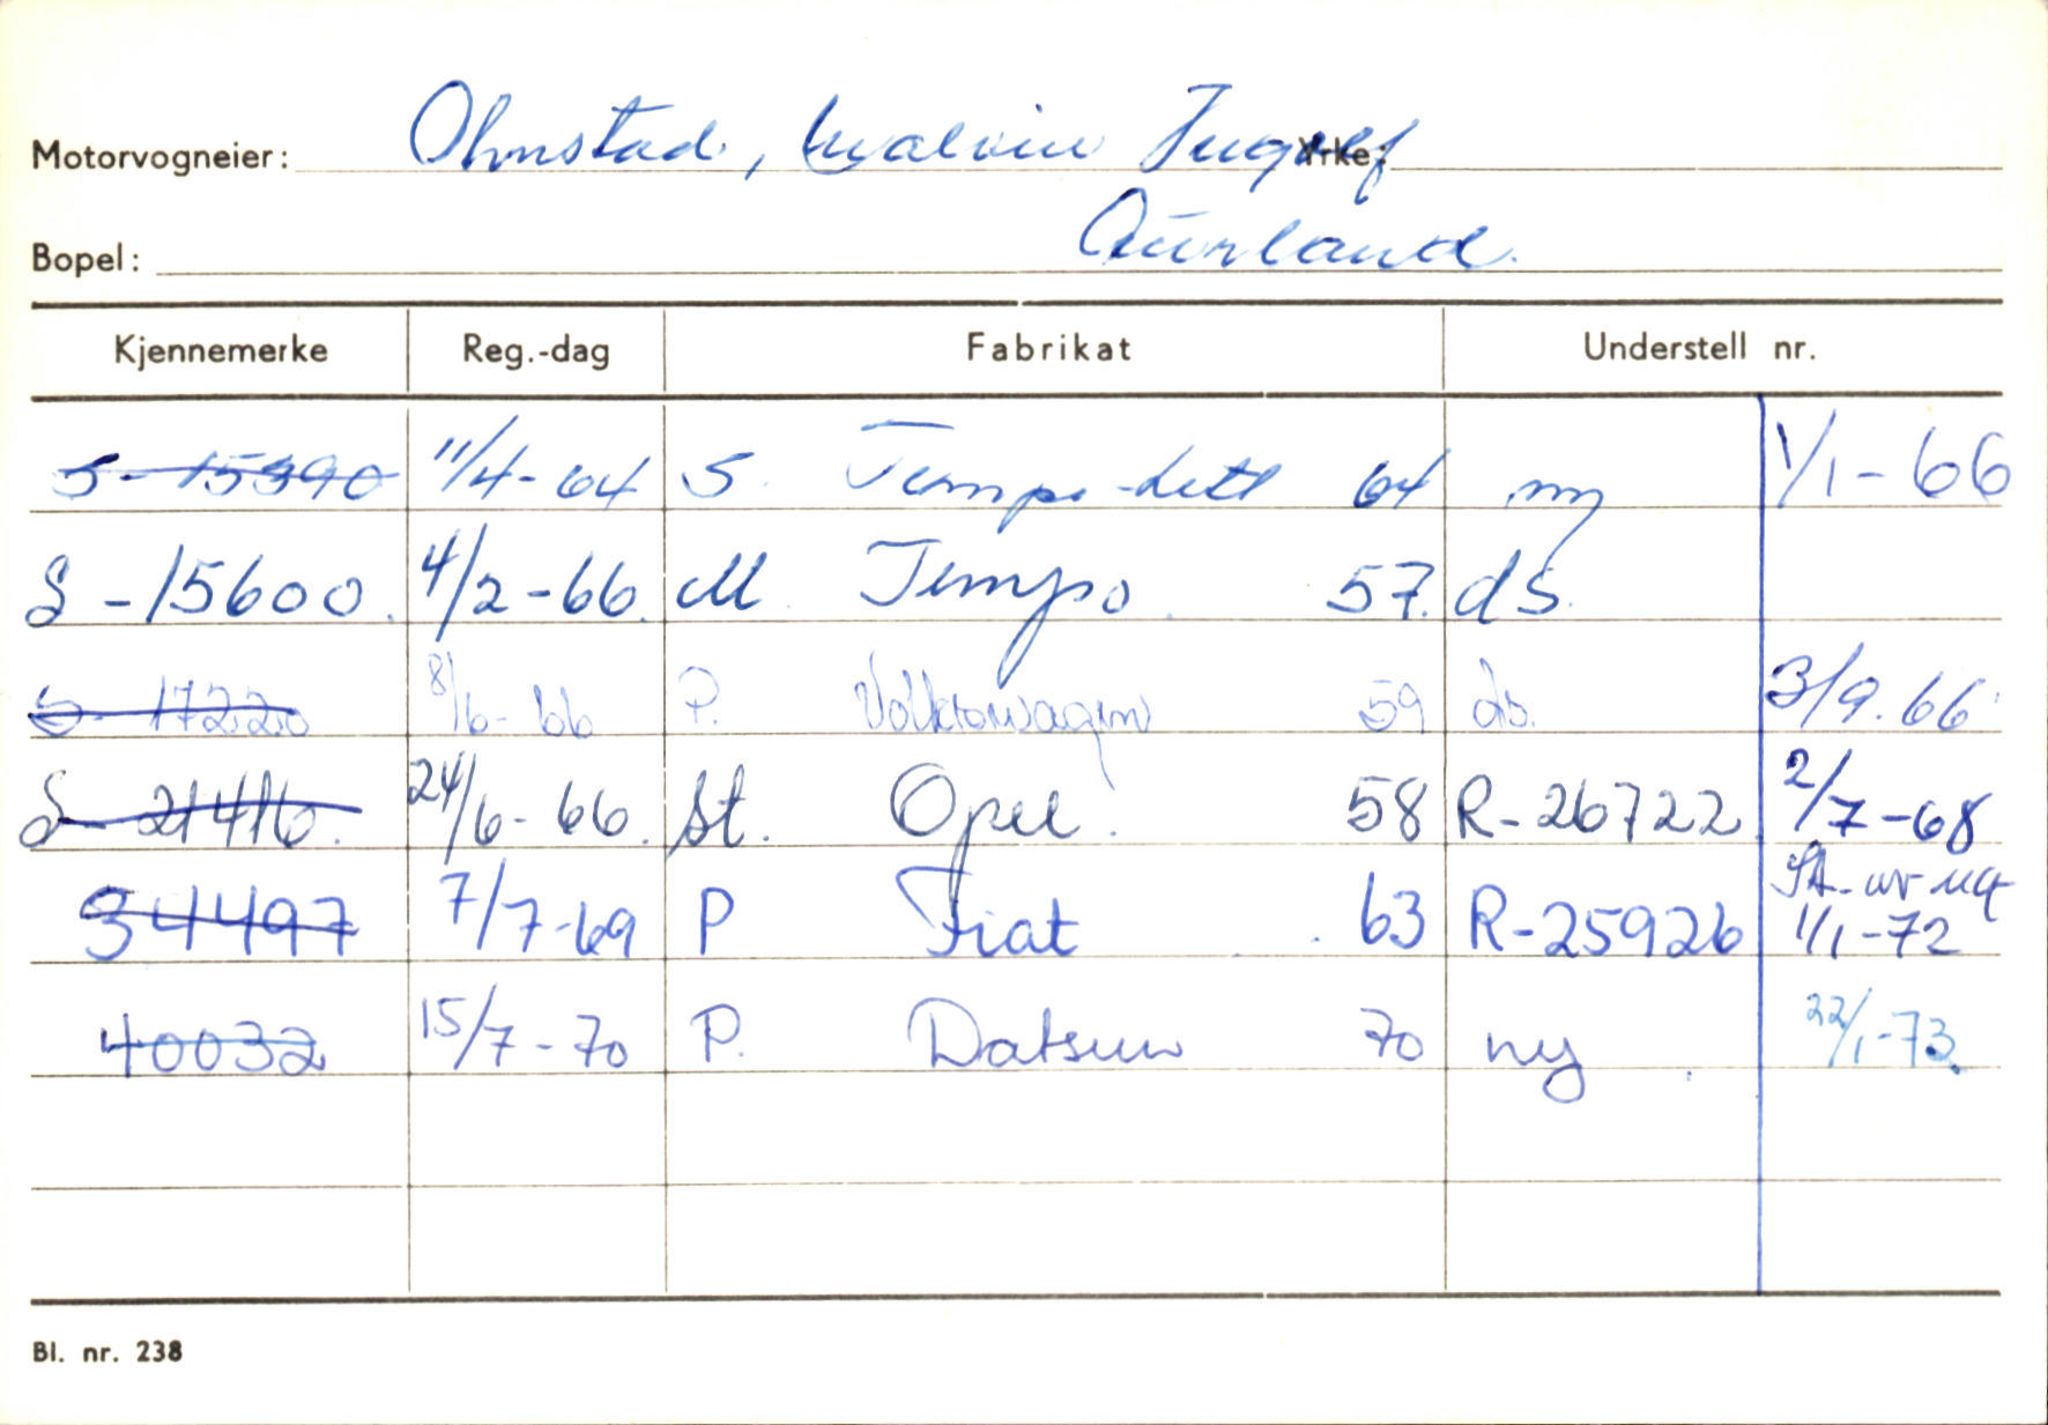 Motorvogneier: Ohnstad, Malvin Ingolf Yrke:
Bopel: Aurland.
Kjennemerke Reg.-dag Fabrikat Understell nr.
S-15390 11/4-64 S. Tempo-lett 64 ny 1/1-66
S-15600. 4/2-66. M. Tempo. 57. ds.
S-17220 8/6-66 P. Volkswagen 59 ds. 3/9.66
S-21416. 24/6-66. St. Opel. 58 R-26722 2/7-68
34497 7/7-69 P Fiat 63 R-25926 1/1-72
40032 15/7-70 P. Datsun 70 ny 22/1-73.
Bl. nr. 238